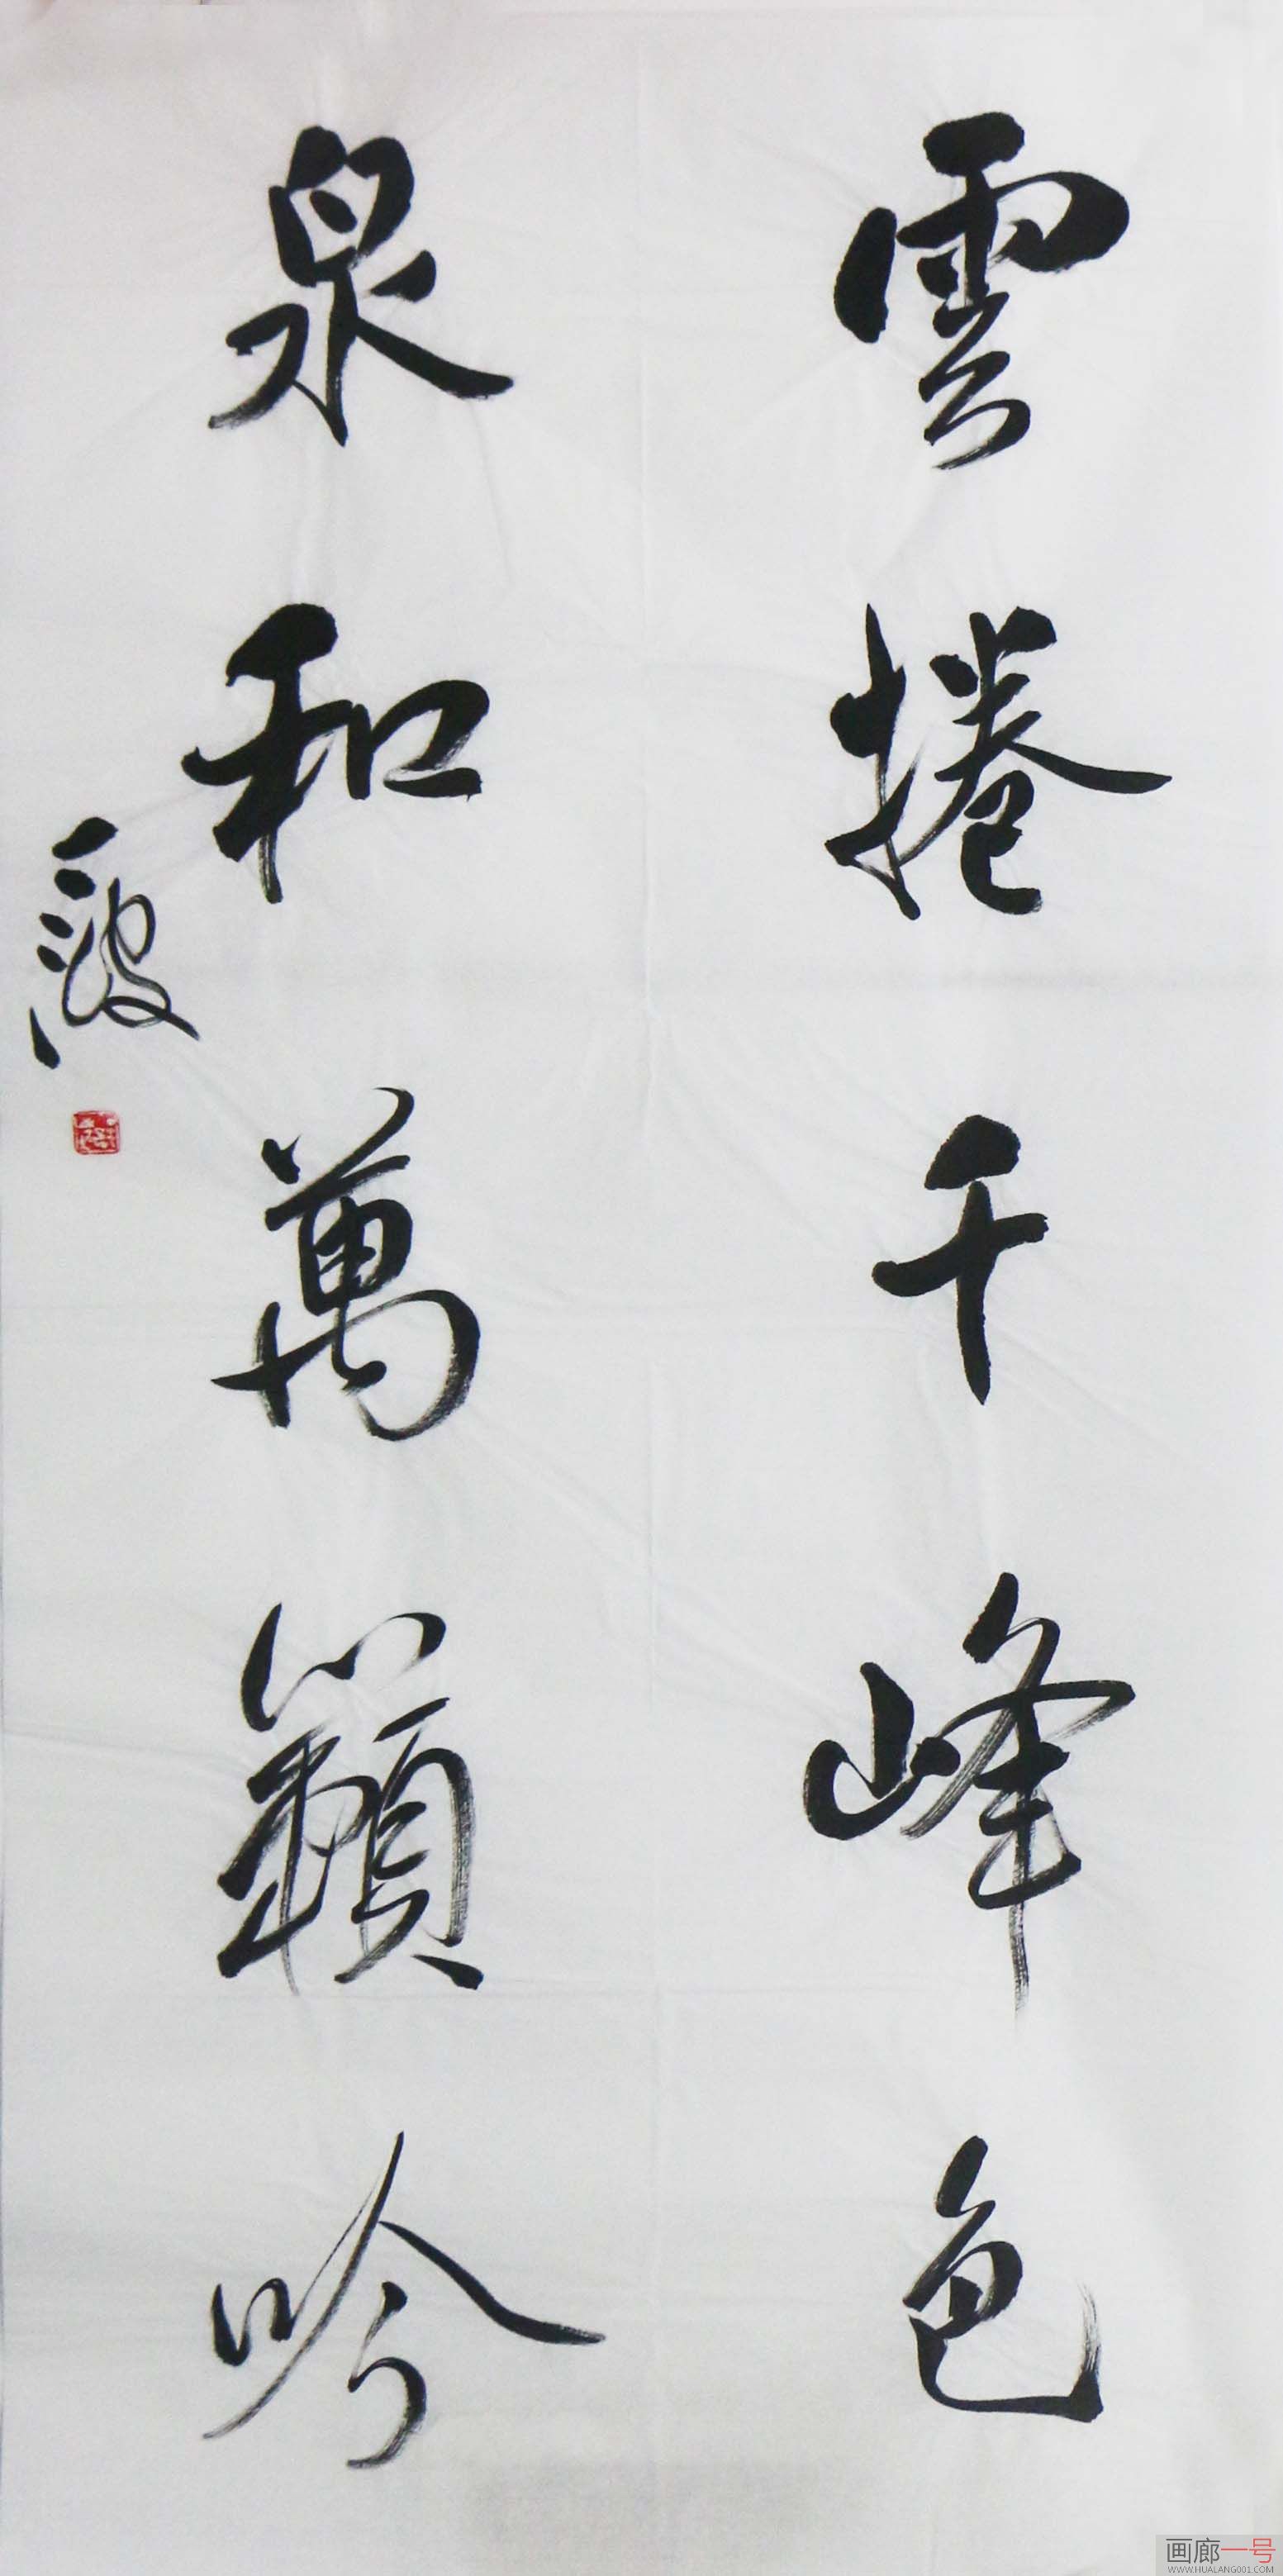 雲捲千峰色
泉和萬籟吟
画廊一号
WWW.HUALANG001.COM